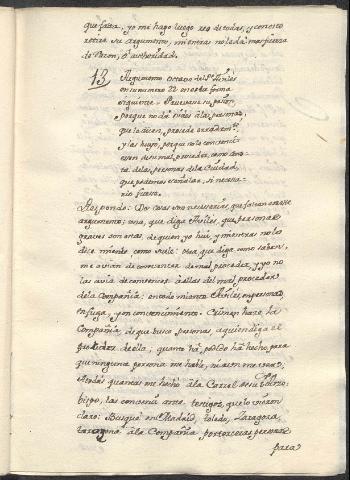 que falta, yo me hago luego reo de todas, y con esto
retire su argumento, mientras no la dà mas fuerza
de Razon, ô authoridad.
13 Argumento octavo del Pe. Aviles
en su numero 22 en esta forma
siguiente =
porque no dà à las personas,
que lo dicen, procede
y las huyo, porque no le convenci
esen de su mal proceder, como
ta de las personas de la Ciudad,
que podemos señalar, si necesa-
rio fuere.
Respondo: Dos cosas son necesarias, que faltan en este
argumento; una, que diga Aviles, que personas
graves son estas, de quien yo hui, y mientras no los
dice miente como suele: otra, que diga como
me avian de convencer de mal proceder, y yo no
las avia de convencer à ellas del mal proceder
de la Compañia: en todo miente Aviles, en personas,
en fuga, y en convencimiento. Crimen hace la
Compañia, de que busco personas a quien diga el
proceder de ella; quanto hà podido hà hecho, para
que ninguna persona me hable, ni aun me vea;
Todas quantas me hecho à la Carcel de su Arzo-
bispo, las convenci ante testigos, que lo vieron
claro: Busquè en Madrid, Toledo, Zaragoza,
Tarazona à la Compañia por terceras personas
para